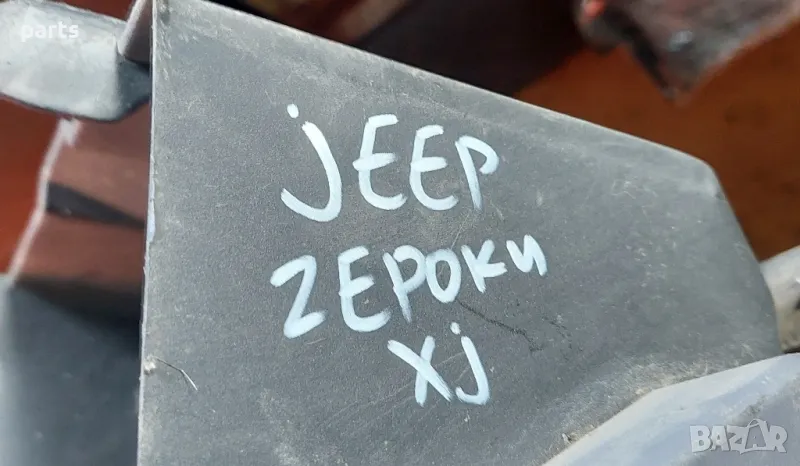 parts
jEEP
ZEPOKИ
xj
BAZAR